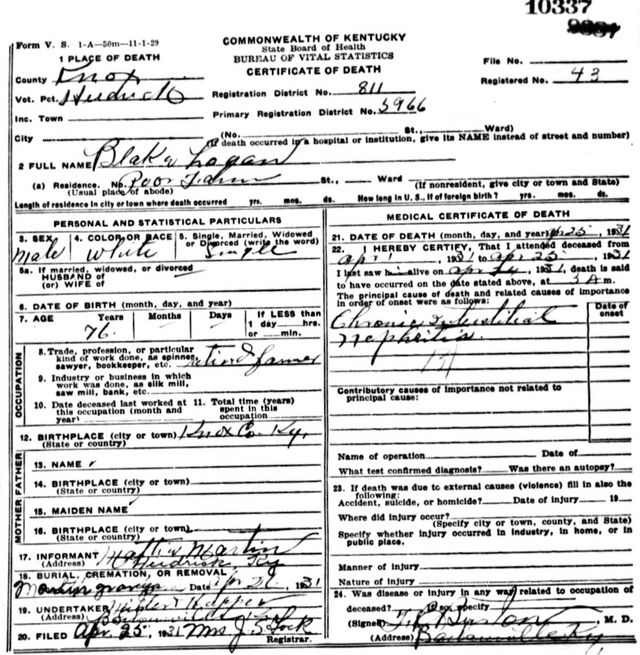 10337
Form V. S. 1-A—50m—11-1-29
COMMONWEALTH OF KENTUCKY
State Board of Health
BUREAU OF VITAL STATISTICS
CERTIFICATE OF DEATH
1 PLACE OF DEATH
County Knox
Vot. Pct.
Inc. Town
City
Registration District No. 811
Primary Registration District No. 5966
File No.
Registered No. 43
(No. St., Ward)
(If death occurred in a hospital or institution, give its NAME instead of street and number)
2 FULL NAME Blake Logan
(a) Residence. No. Poor Farm St., Ward (If nonresident, give city or town and State)
(Usual place of abode)
Length of residence in city or town where death occurred yrs. mos. ds. How long in U. S., if of foreign birth? yrs. mos. ds.
PERSONAL AND STATISTICAL PARTICULARS
3. SEX Male
4. COLOR OR RACE White
5. Single, Married, Widowed or Divorced (write the word) Single
5a. If married, widowed, or divorced
HUSBAND of
(or) WIFE of
6. DATE OF BIRTH (month, day, and year)
7. AGE Years 76 Months Days If LESS than
1 day hrs.
or min.
OCCUPATION
8. Trade, profession, or particular
kind of work done, as spinner,
sawyer, bookkeeper, etc.
9. Industry or business in which
work was done, as silk mill,
saw mill, bank, etc.
10. Date deceased last worked at
this occupation (month and
year)
11. Total time (years)
spent in this
occupation
12. BIRTHPLACE (city or town) Knox Co. Ky,
(State or country)
FATHER
13. NAME
14. BIRTHPLACE (city or town)
(State or country)
MOTHER
15. MAIDEN NAME
16. BIRTHPLACE (city or town)
(State or country)
17. INFORMANT Martin
(Address) Ky
18. BURIAL, CREMATION, OR REMOVAL
Martin Date 1931
19. UNDERTAKER
(Address)
20. FILED Apr. 25 1931 Mrs J. S.
Registrar.
MEDICAL CERTIFICATE OF DEATH
21. DATE OF DEATH (month, day, and year) Apr 25, 1931
22. I HEREBY CERTIFY, That I attended deceased from
Apr 1 1931 to Apr 25, 1931
I last saw him alive on Apr 24, 1931, death is said
to have occurred on the date stated above, at 3 A m.
The principal cause of death and related causes of importance
in order of onset were as follows:
Date of onset
Chronic Interstitial
Nephritis
Contributory causes of importance not related to
principal cause:
Name of operation Date of
What test confirmed diagnosis? Was there an autopsy?
23. If death was due to external causes (violence) fill in also the
following:
Accident, suicide, or homicide? Date of injury 19
Where did injury occur?
(Specify city or town, county, and State)
Specify whether injury occurred in industry, in home, or in
public place.
Manner of injury
Nature of injury
24. Was disease or injury in any way related to occupation of
deceased? If so specify
(Signed) M. D.
(Address)